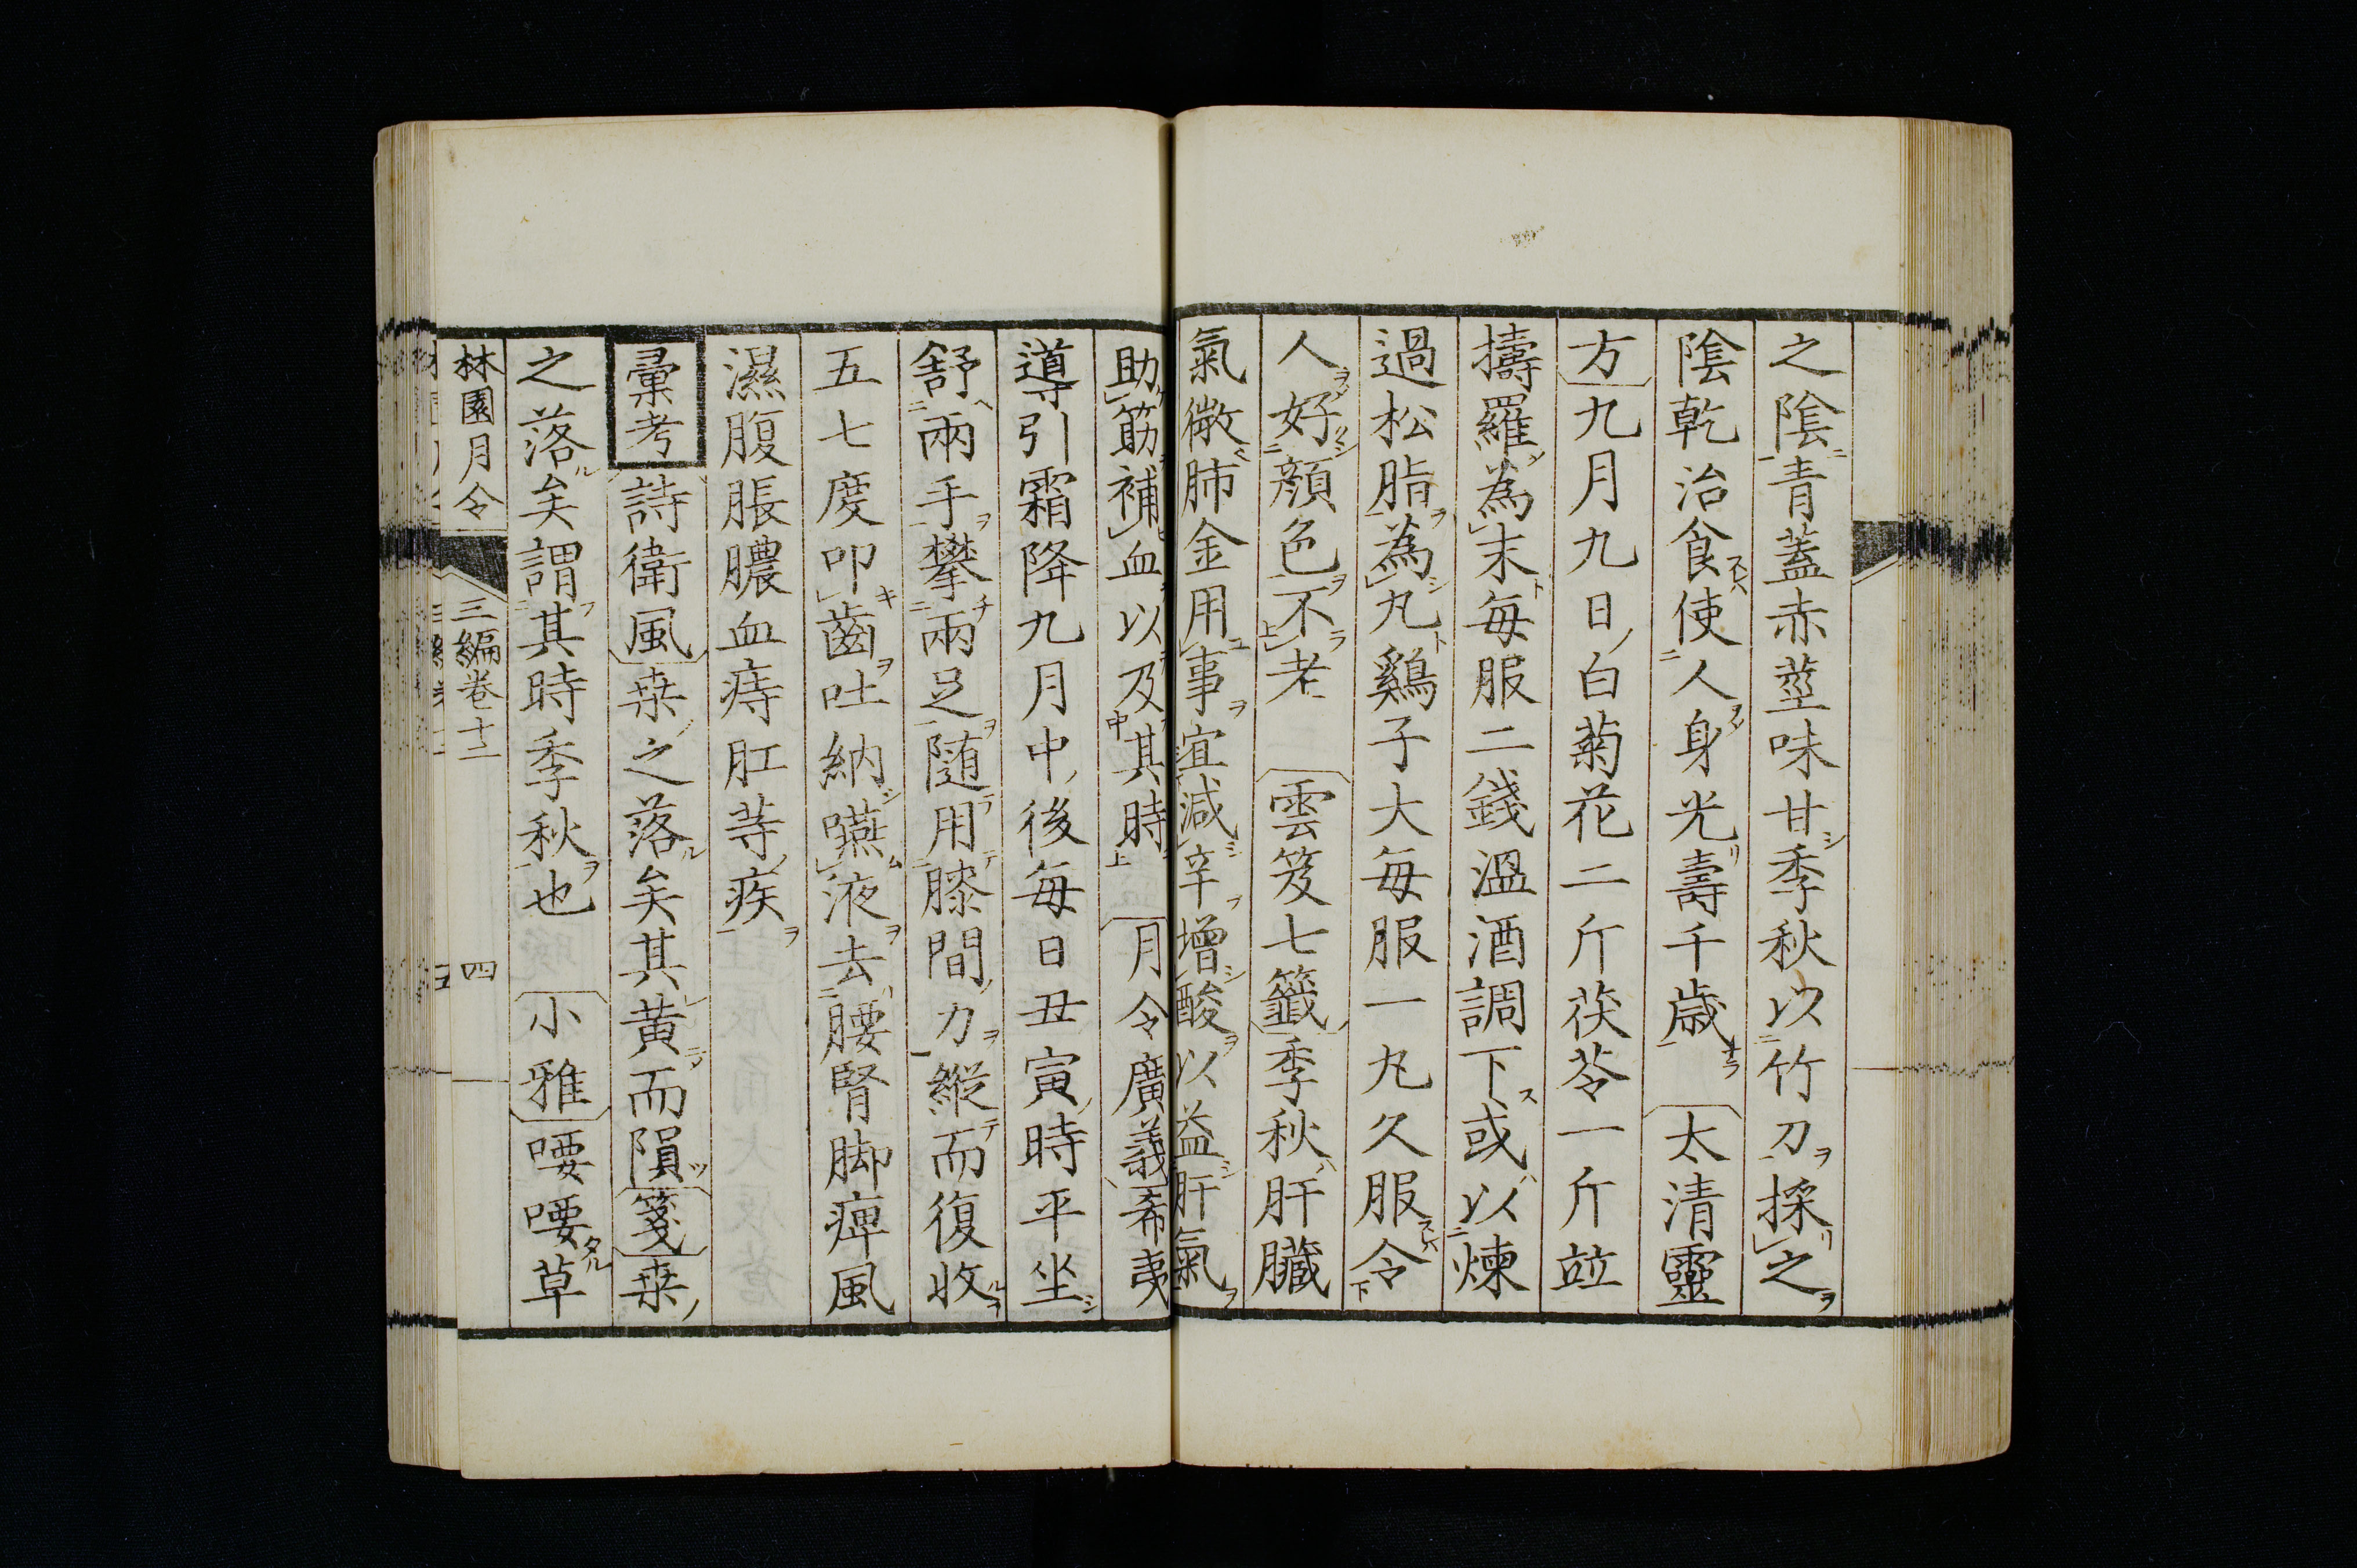 之陰青蓋赤莖味甘季秋以竹刀採之
陰乾治食使人身光壽千歳 太清靈
方九月九日白菊花二斤茯苓一斤竝
擣羅為末毎服二錢溫酒調下或以煉
過松脂為丸鷄子大毎服一丸久服令
人好顔色不老 雲笈七籤季秋肝臟
氣微肺金用事宜減辛增酸以益肝氣
助筋補血以及其時 月令廣義希夷
導引霜降九月中後毎日丑寅時平坐
舒兩手攀兩足随用膝間力縱而復收
五七度叩齒吐納嚥液去腰腎脚痺風
濕腹脹膿血痔肛䓁疾
彙考詩衛風桒之落矣其黄而隕箋桒
之落矣謂其時季秋也 小雅喓喓草
林園月令 三編卷十二 四